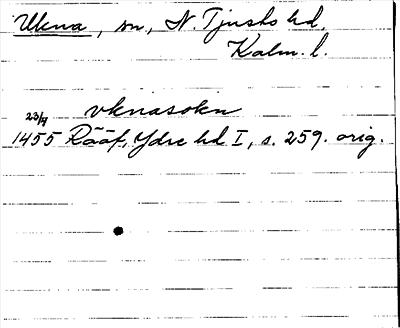 Ukna, sn, N. Tjusts hd.
Kalm. l.
vknasokn
23/7
1455 Rääf, Ydre hd I, s. 259. orig.